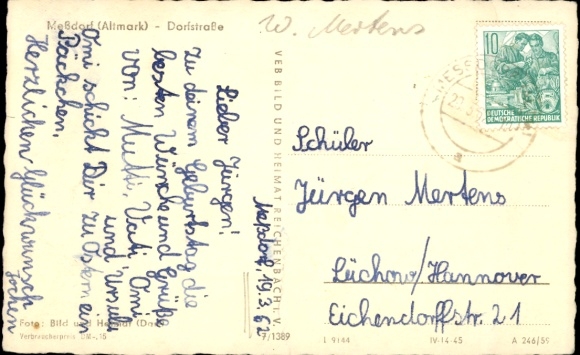 Meßdorf (Altmark) - Dorfstraße
W. Mertens
Meßdorf, 19.3.62
Lieber Jürgen!
Zu deinem Geburtstag die
besten Wünsche und Grüße
von: Mutti, Vati, Omi
und Ursula
Omi schickt Dir zu Ostern ein
Päckchen.
Herzlichen Glückwunsch
Jochen
VEB BILD UND HEIMAT REICHENBACH i. V.
10
DEUTSCHE
DEMOKRATISCHE REPUBLIK
Schüler
Jürgen Mertens
Lüchow/Hannover
Eichendorffstr. 21
Foto: Bild und Heimat
Verbraucherpreis DM -,15
7/1389
L 9144
IV-14-45
A 246/59